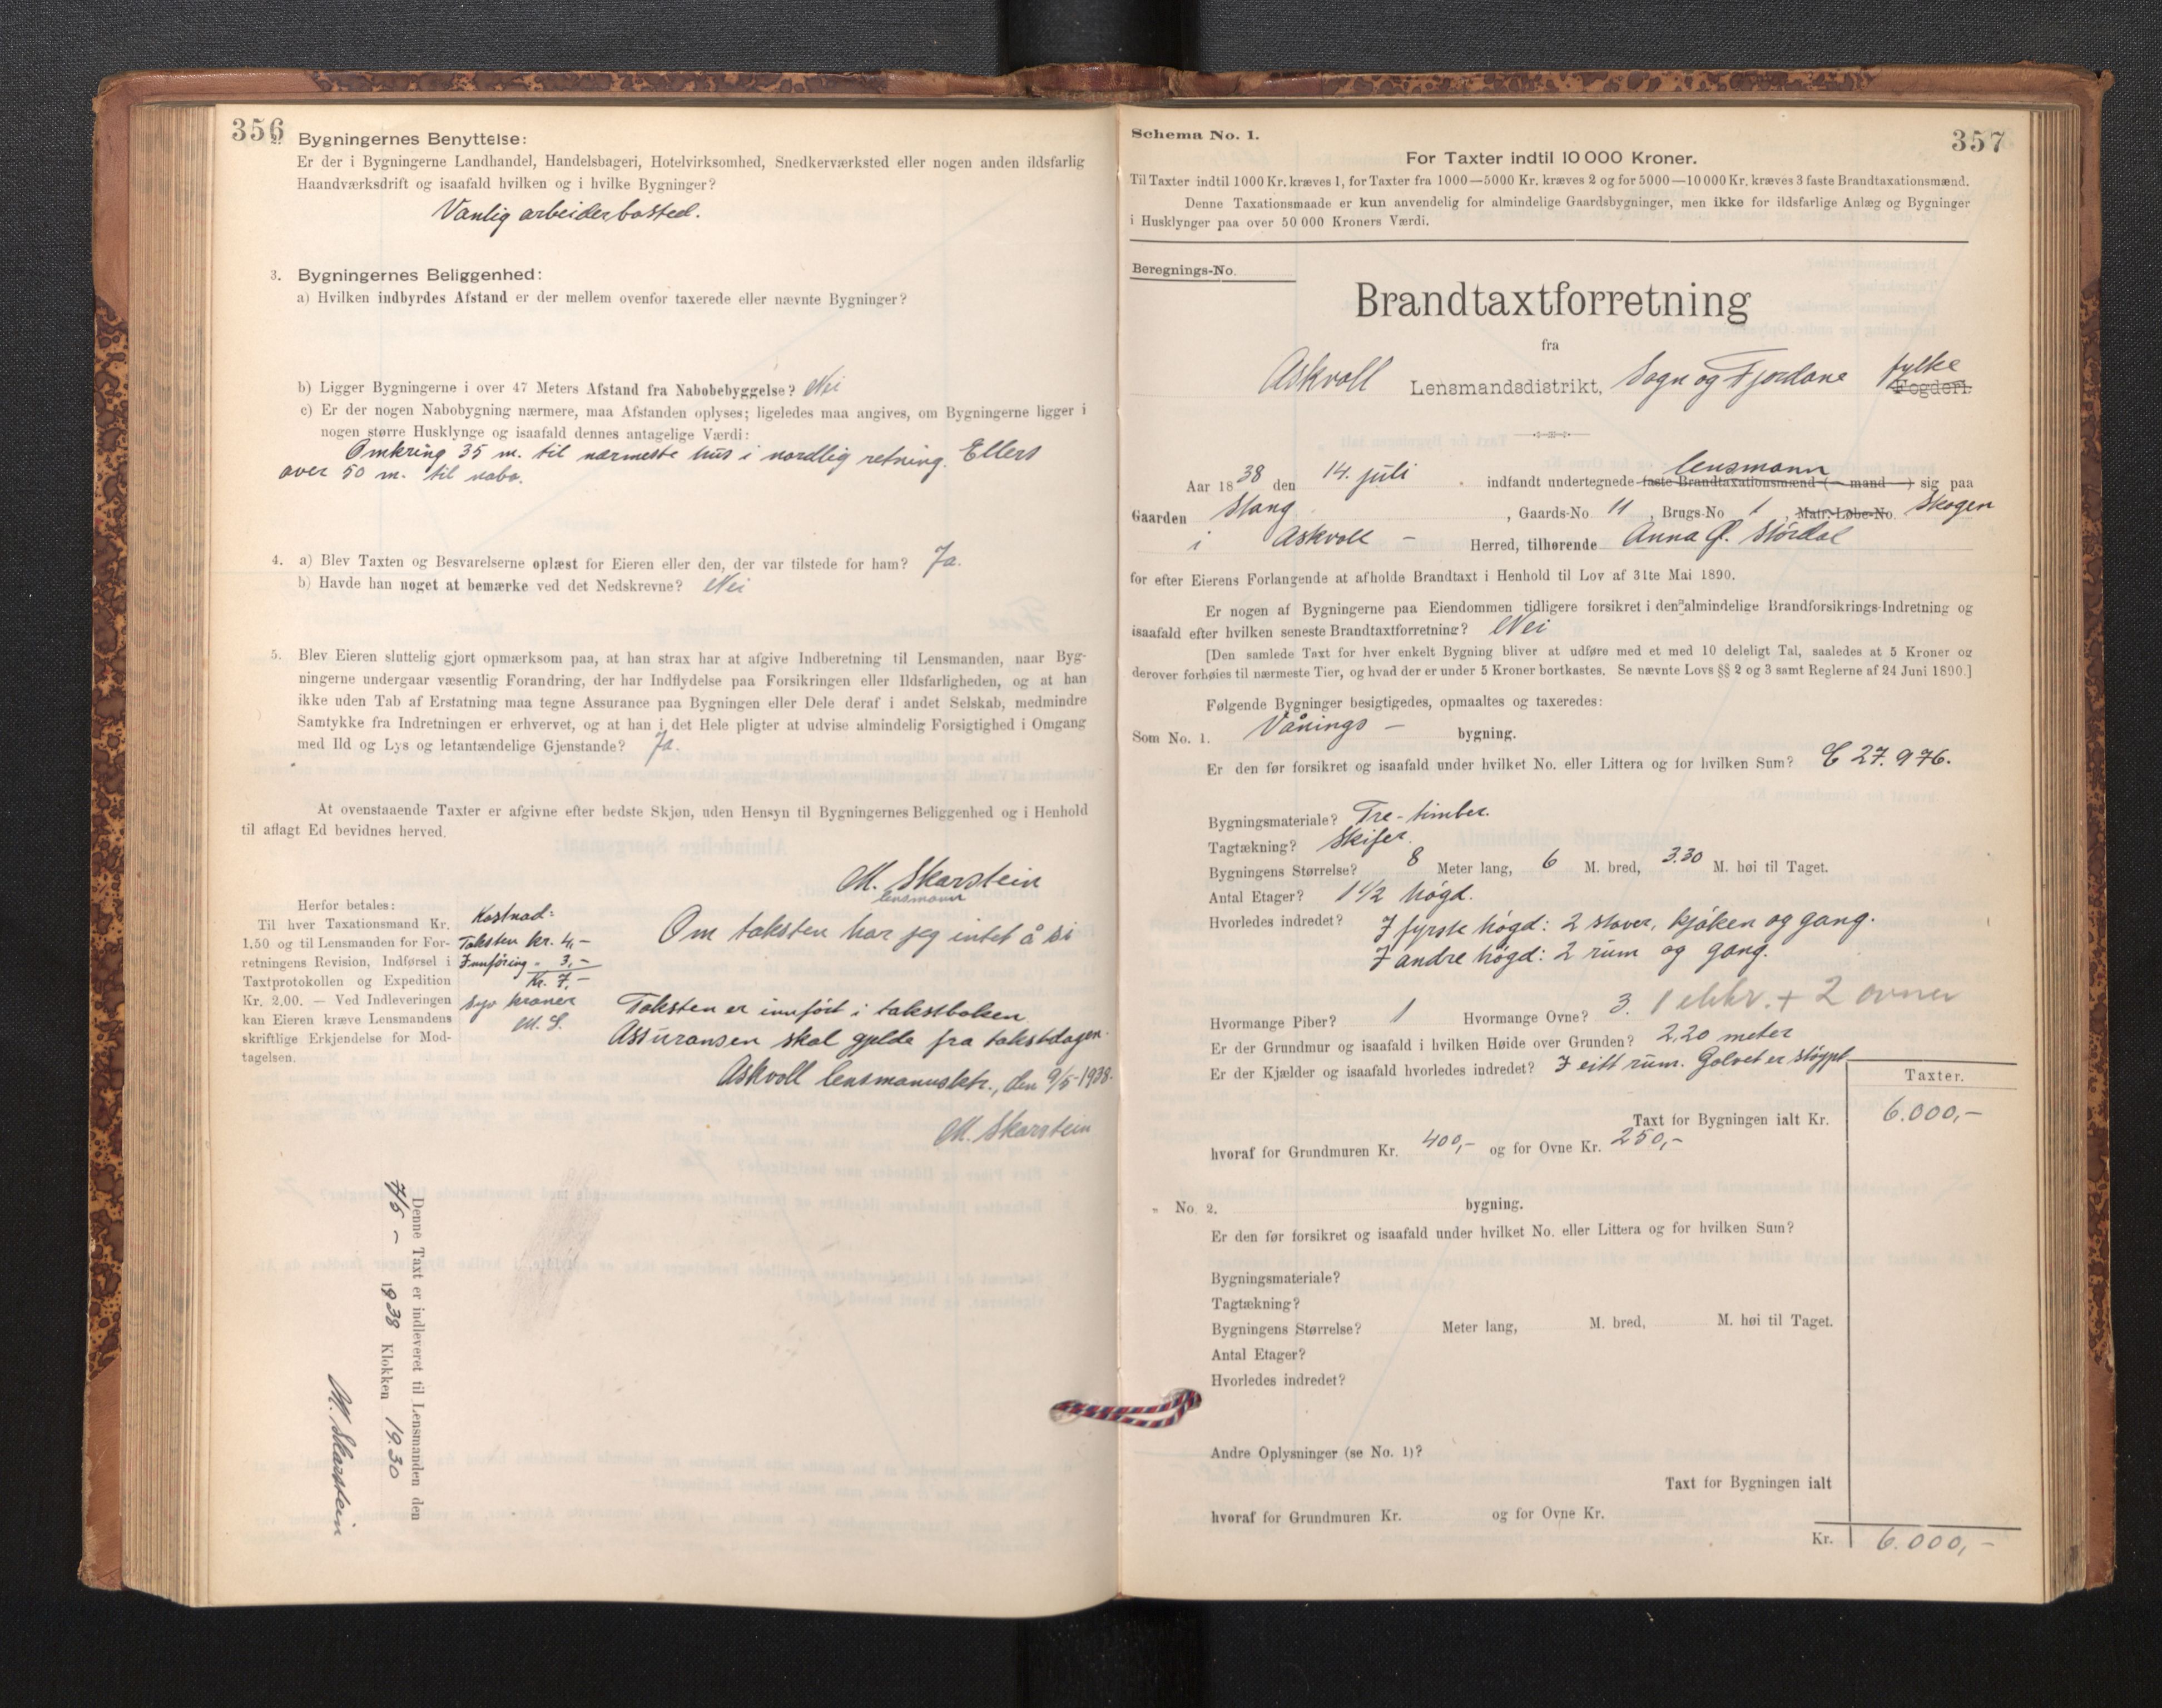 356
2. Bygningernes Benyttelse:
Er der i Bygningerne Landhandel, Handelsbageri, Hotelvirksomhed, Snedkerværksted eller nogen anden ildsfarlig
Haandværksdrift og isaafald hvilken og i hvilke Bygninger?
Vanlig arbeiderbosted.
3. Bygningernes Beliggenhed:
a) Hvilken indbyrdes Afstand er der mellem ovenfor taxerede eller nævnte Bygninger?
b) Ligger Bygningerne i over 47 Meters Afstand fra Nabobebyggelse? Nei
c) Er der nogen Nabobygning nærmere, maa Afstanden oplyses; ligeledes maa angives, om Bygningerne ligger i
nogen større Husklynge og isaafald dennes antagelige Værdi:
Omkring 35 m. til nærmeste hus i nordlig retning. Ellers
over 50 m. til nabo.
4. a) Blev Taxten og Besvarelserne oplæst for Eieren eller den, der var tilstede for ham? Ja.
b) Havde han noget at bemærke ved det Nedskrevne? Nei
5. Blev Eieren sluttelig gjort opmærksom paa, at han strax har at afgive Indberetning til Lensmanden, naar Byg-
ningerne undergaar væsentlig Forandring, der har Indflydelse paa Forsikringen eller Ildsfarligheden, og at han
ikke uden Tab af Erstatning maa tegne Assurance paa Bygningen eller Dele deraf i andet Selskab, medmindre
Samtykke fra Indretningen er erhvervet, og at han i det Hele pligter at udvise almindelig Forsigtighed i Omgang
med Ild og Lys og letantændelige Gjenstande? Ja.
At ovenstaaende Taxter er afgivne efter bedste Skjøn, uden Hensyn til Bygningernes Beliggenhed og i Henhold
til aflagt Ed bevidnes herved.
M. Skarstein
lensmann
Herfor betales:
Til hver Taxationsmand Kr.
1,50 og til Lensmanden for For-
retningens Revision, Indførsel i
Taxtprotokollen og Expedition
Kr. 2,00. — Ved Indleveringen
kan Eieren kræve Lensmandens
skriftlige Erkjendelse for Mod-
tagelsen.
Kostnad:
Taksten kr. 4,-
Innføring " 3,-
Kr. 7,-
Syv kroner
M. S.
Om taksten har jeg intet å si
Taksten er innført i takstboken.
Assuransen skal gjelde fra takstdagen.
Askvoll lensmannsktr., den 9/5-1938.
M. Skarstein
Denne Taxt er indleveret til Lensmanden den
7/5 - 1938 Klokken 19.30
M. Skarstein
Schema No. 1.
357
For Taxter indtil 10 000 Kroner.
Til Taxter indtil 1000 Kr. kræves 1, for Taxter fra 1000—5000 Kr. kræves 2 og for 5000—10 000 Kr. kræves 3 faste Brandtaxationsmænd.
Denne Taxationsmaade er kun anvendelig for almindelige Gaardsbygninger, men ikke for ildsfarlige Anlæg og Bygninger
i Husklynger paa over 50 000 Kroners Værdi.
Beregnings-No.
Brandtaxtforretning
fra
Askvoll Lensmandsdistrikt, Sogn og Fjordane fylke Fogderi.
Aar 1838 den 14. juli indfandt undertegnede faste Brandtaxationsmænd (— mand —) lensmann sig paa
Gaarden Stang, Gaards-No 11, Brugs-No 1, Matr.-Løbe-No. Skogen
i Askvoll - Herred, tilhørende Anna Ø. Stórdal
for efter Eierens Forlangende at afholde Brandtaxt i Henhold til Lov af 31te Mai 1890.
Er nogen af Bygningerne paa Eiendommen tidligere forsikret i den almindelige Brandforsikrings-Indretning og
isaafald efter hvilken seneste Brandtaxtforretning? Nei
[Den samlede Taxt for hver enkelt Bygning bliver at udføre med et med 10 deleligt Tal, saaledes at 5 Kroner og
derover forhøies til nærmeste Tier, og hvad der er under 5 Kroner bortkastes. Se nævnte Lovs §§ 2 og 3 samt Reglerne af 24 Juni 1890.]
Følgende Bygninger besigtigedes, opmaaltes og taxeredes:
Som No. 1. Vånings - bygning.
Er den før forsikret og isaafald under hvilket No. eller Littera og for hvilken Sum? C 27.976.
Bygningsmateriale? Tre-timber.
Tagtækning? Skifer.
Bygningens Størrelse? 8 Meter lang, 6 M. bred, 3.30 M. høi til Taget.
Antal Etager? 1 1/2 høgd.
Hvorledes indredet? I fyrste høgd: 2 stover, kjøken og gang.
I andre høgd: 2 rum og gang.
Hvormange Piber? 1 Hvormange Ovne? 3. 1 elektr. + 2 ovner
Er der Grundmur og isaafald i hvilken Høide over Grunden? 2,20 meter
Er der Kjælder og isaafald hvorledes indredet? I eitt rum. Golvet er støypt
Taxter.
Taxt for Bygningen ialt Kr. 6.000,-
hvoraf for Grundmuren Kr. 400,- og for Ovne Kr. 250,-
" No. 2. bygning.
Er den før forsikret og isaafald under hvilket No. eller Littera og for hvilken Sum?
Bygningsmateriale?
Tagtækning?
Bygningens Størrelse? Meter lang, M. bred, M. høi til Taget.
Antal Etager?
Hvorledes indredet?
Andre Oplysninger (se No. 1)?
Taxt for Bygningen ialt
hvoraf for Grundmuren Kr. og for Ovne Kr.
Kr. 6.000,-